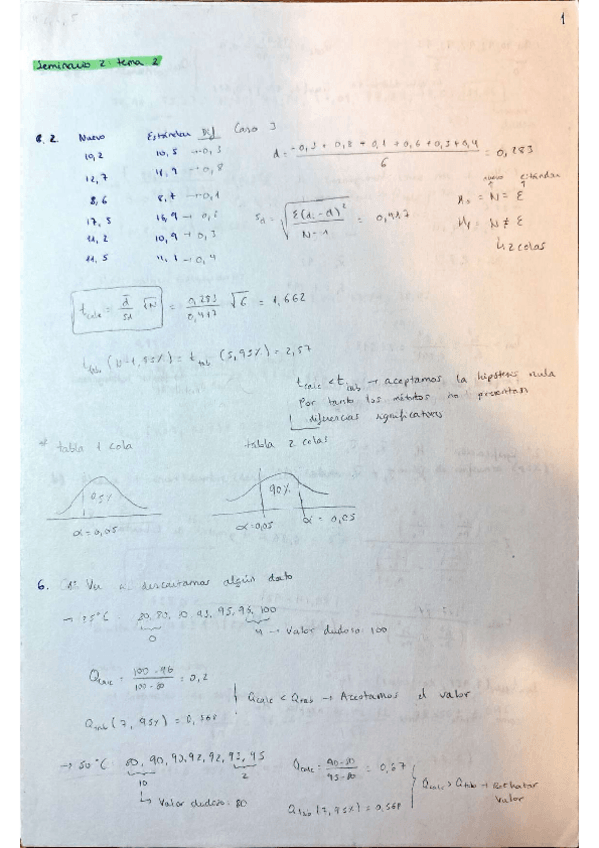 1
Seminario 2: tema 2
8.2. Nuevo Estándar Dif Caso 3
10,2 10,5 → -0,3
12,7 11,9 → 0,8
8,6 8,7 → -0,1
17,5 16,9 →
11,2 10,9 → 0,3
11,5 11,1 → 0,4
6
= 0,283
nuevo estándar
H₀ = N = E
H₁ = N ≠ E
↳ 2 colas
N-1
t calc = d/sd √N = 0,283/0,417 √6 = 1,662
t tab (N-1, 95%) = t tab (5, 95%) = 2,57
t calc < t tab → aceptamos la hipótesis nula
Por tanto los métodos no presentan
diferencias significativas
* tabla 1 cola tabla 2 colas
95% 90%
α = 0,05 α = 0,05 α = 0,05
6. Ver si descartamos algún dato
95, 95, 100
0 4 → Valor dudoso: 100
Q calc = 100-96/100-80 = 0,2
Q calc < Q tab → Aceptamos el valor
Q tab (7, 95%) = 0,568
→ 50°C 80, 90, 90, 92, 92, 93, 95
10 2
↳ Valor dudoso: 80
Q calc = 90-80/95-80 = 0,67
Q tab (7, 95%) = 0,568
Q calc > Q tab → Rechazar
valor